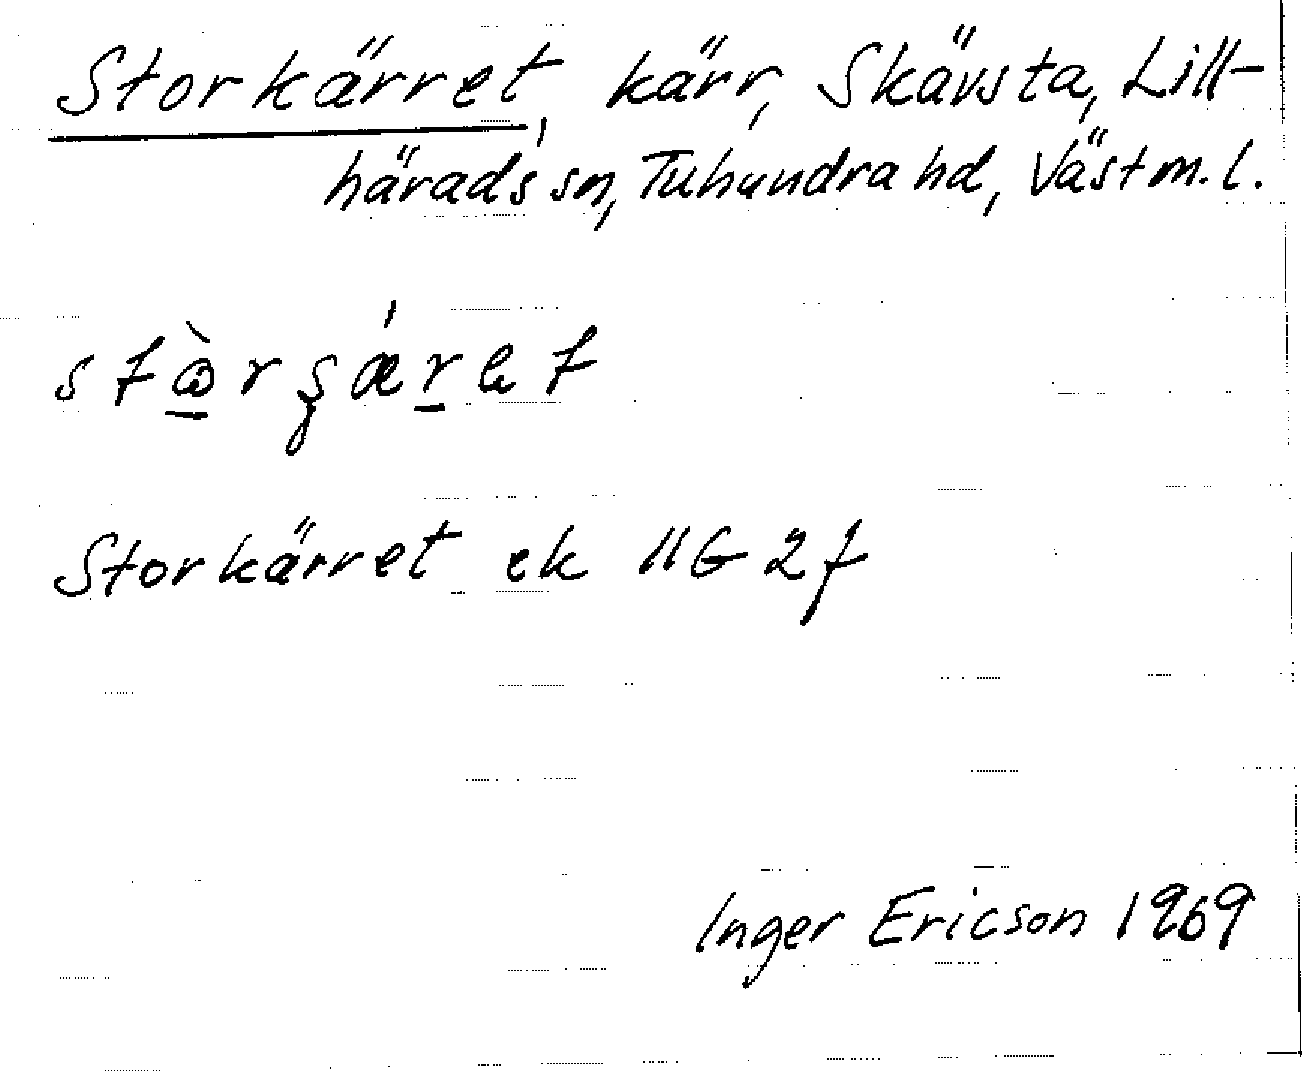 Storkärret, kärr, Skävsta, Lill-
härads sn, Tuhundra hd, Västm. l.
Storkärret ek 11G 2f
Inger Ericson 1969